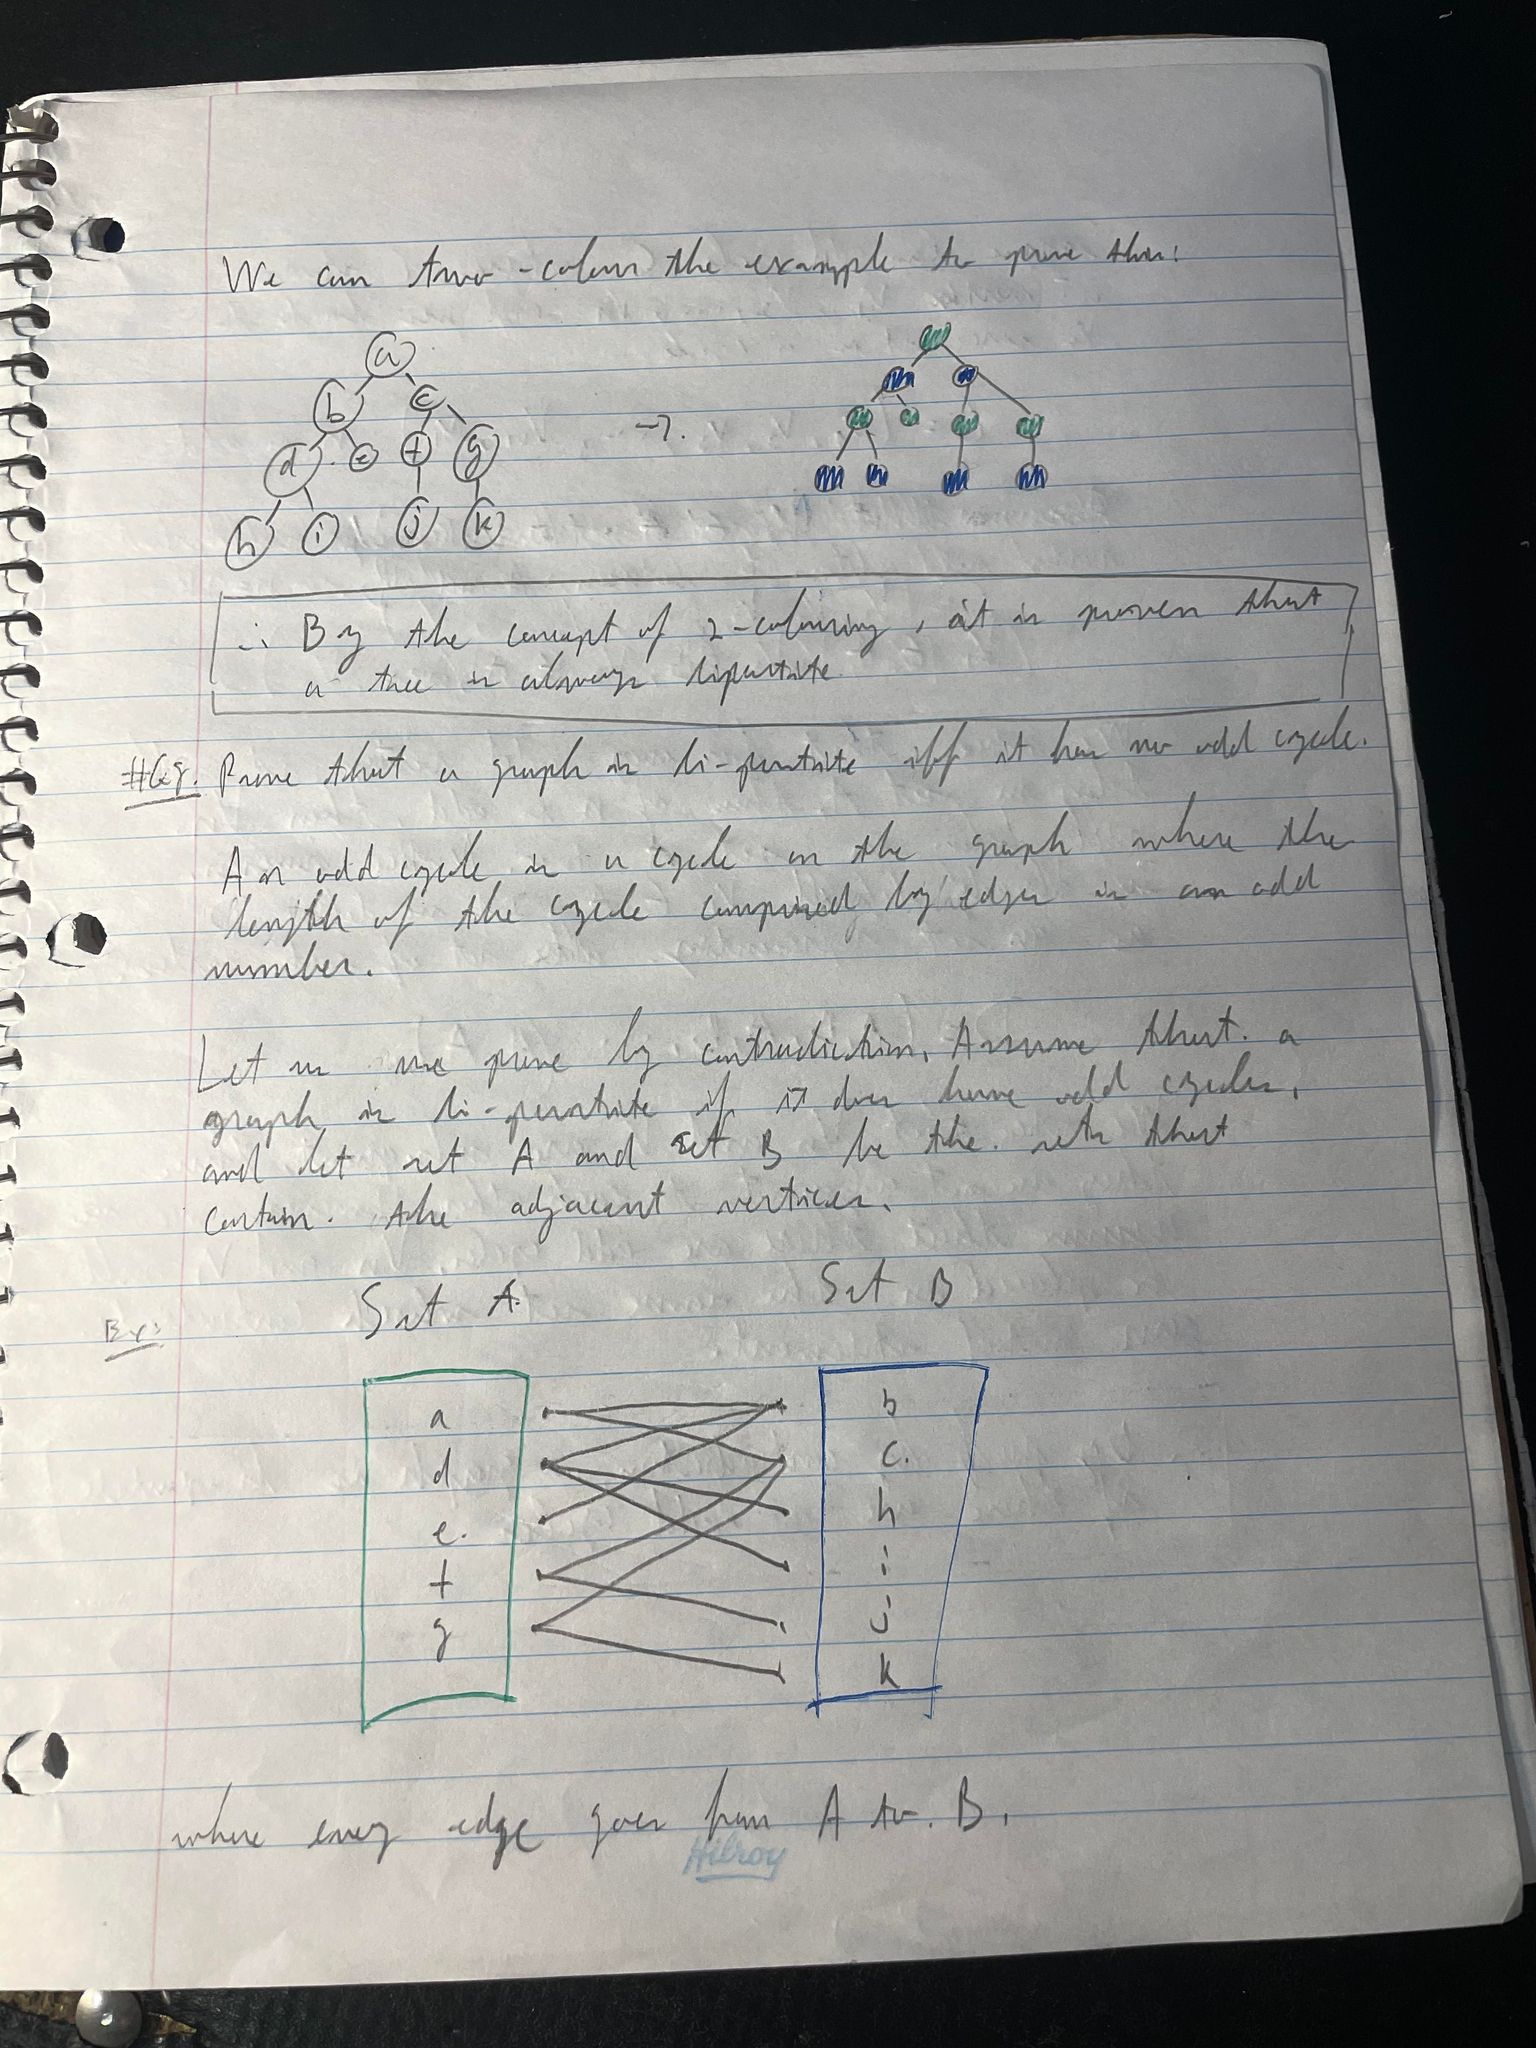 We can two-colour the example to prove this:
a
b c
d e f g
h i j k
→
∴ By the concept of 2-colouring, it is proven that
a tree is always bipartite
#G8. Prove that a graph is bi-partite iff it has no odd cycle.
An odd cycle is a cycle on the graph where the
length of the cycle comprised by edges is an odd
number.
Let us prove by contradiction. Assume that a
graph is bi-partite if it does have odd cycles,
and let set A and set B be the sets that
contain the adjacent vertices.
Set A Set B
Ex:
a b
d c.
e. h
f i
g j
k
where every edge goes from A to B.
Hilroy